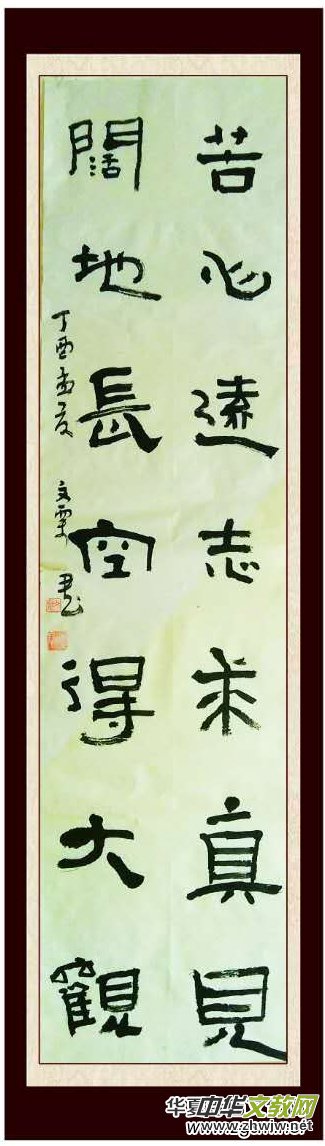 苦心遠志求真見
闊地長空得大觀
丁酉孟夏 文 書
华夏中华文教网
www.zhwjw.net